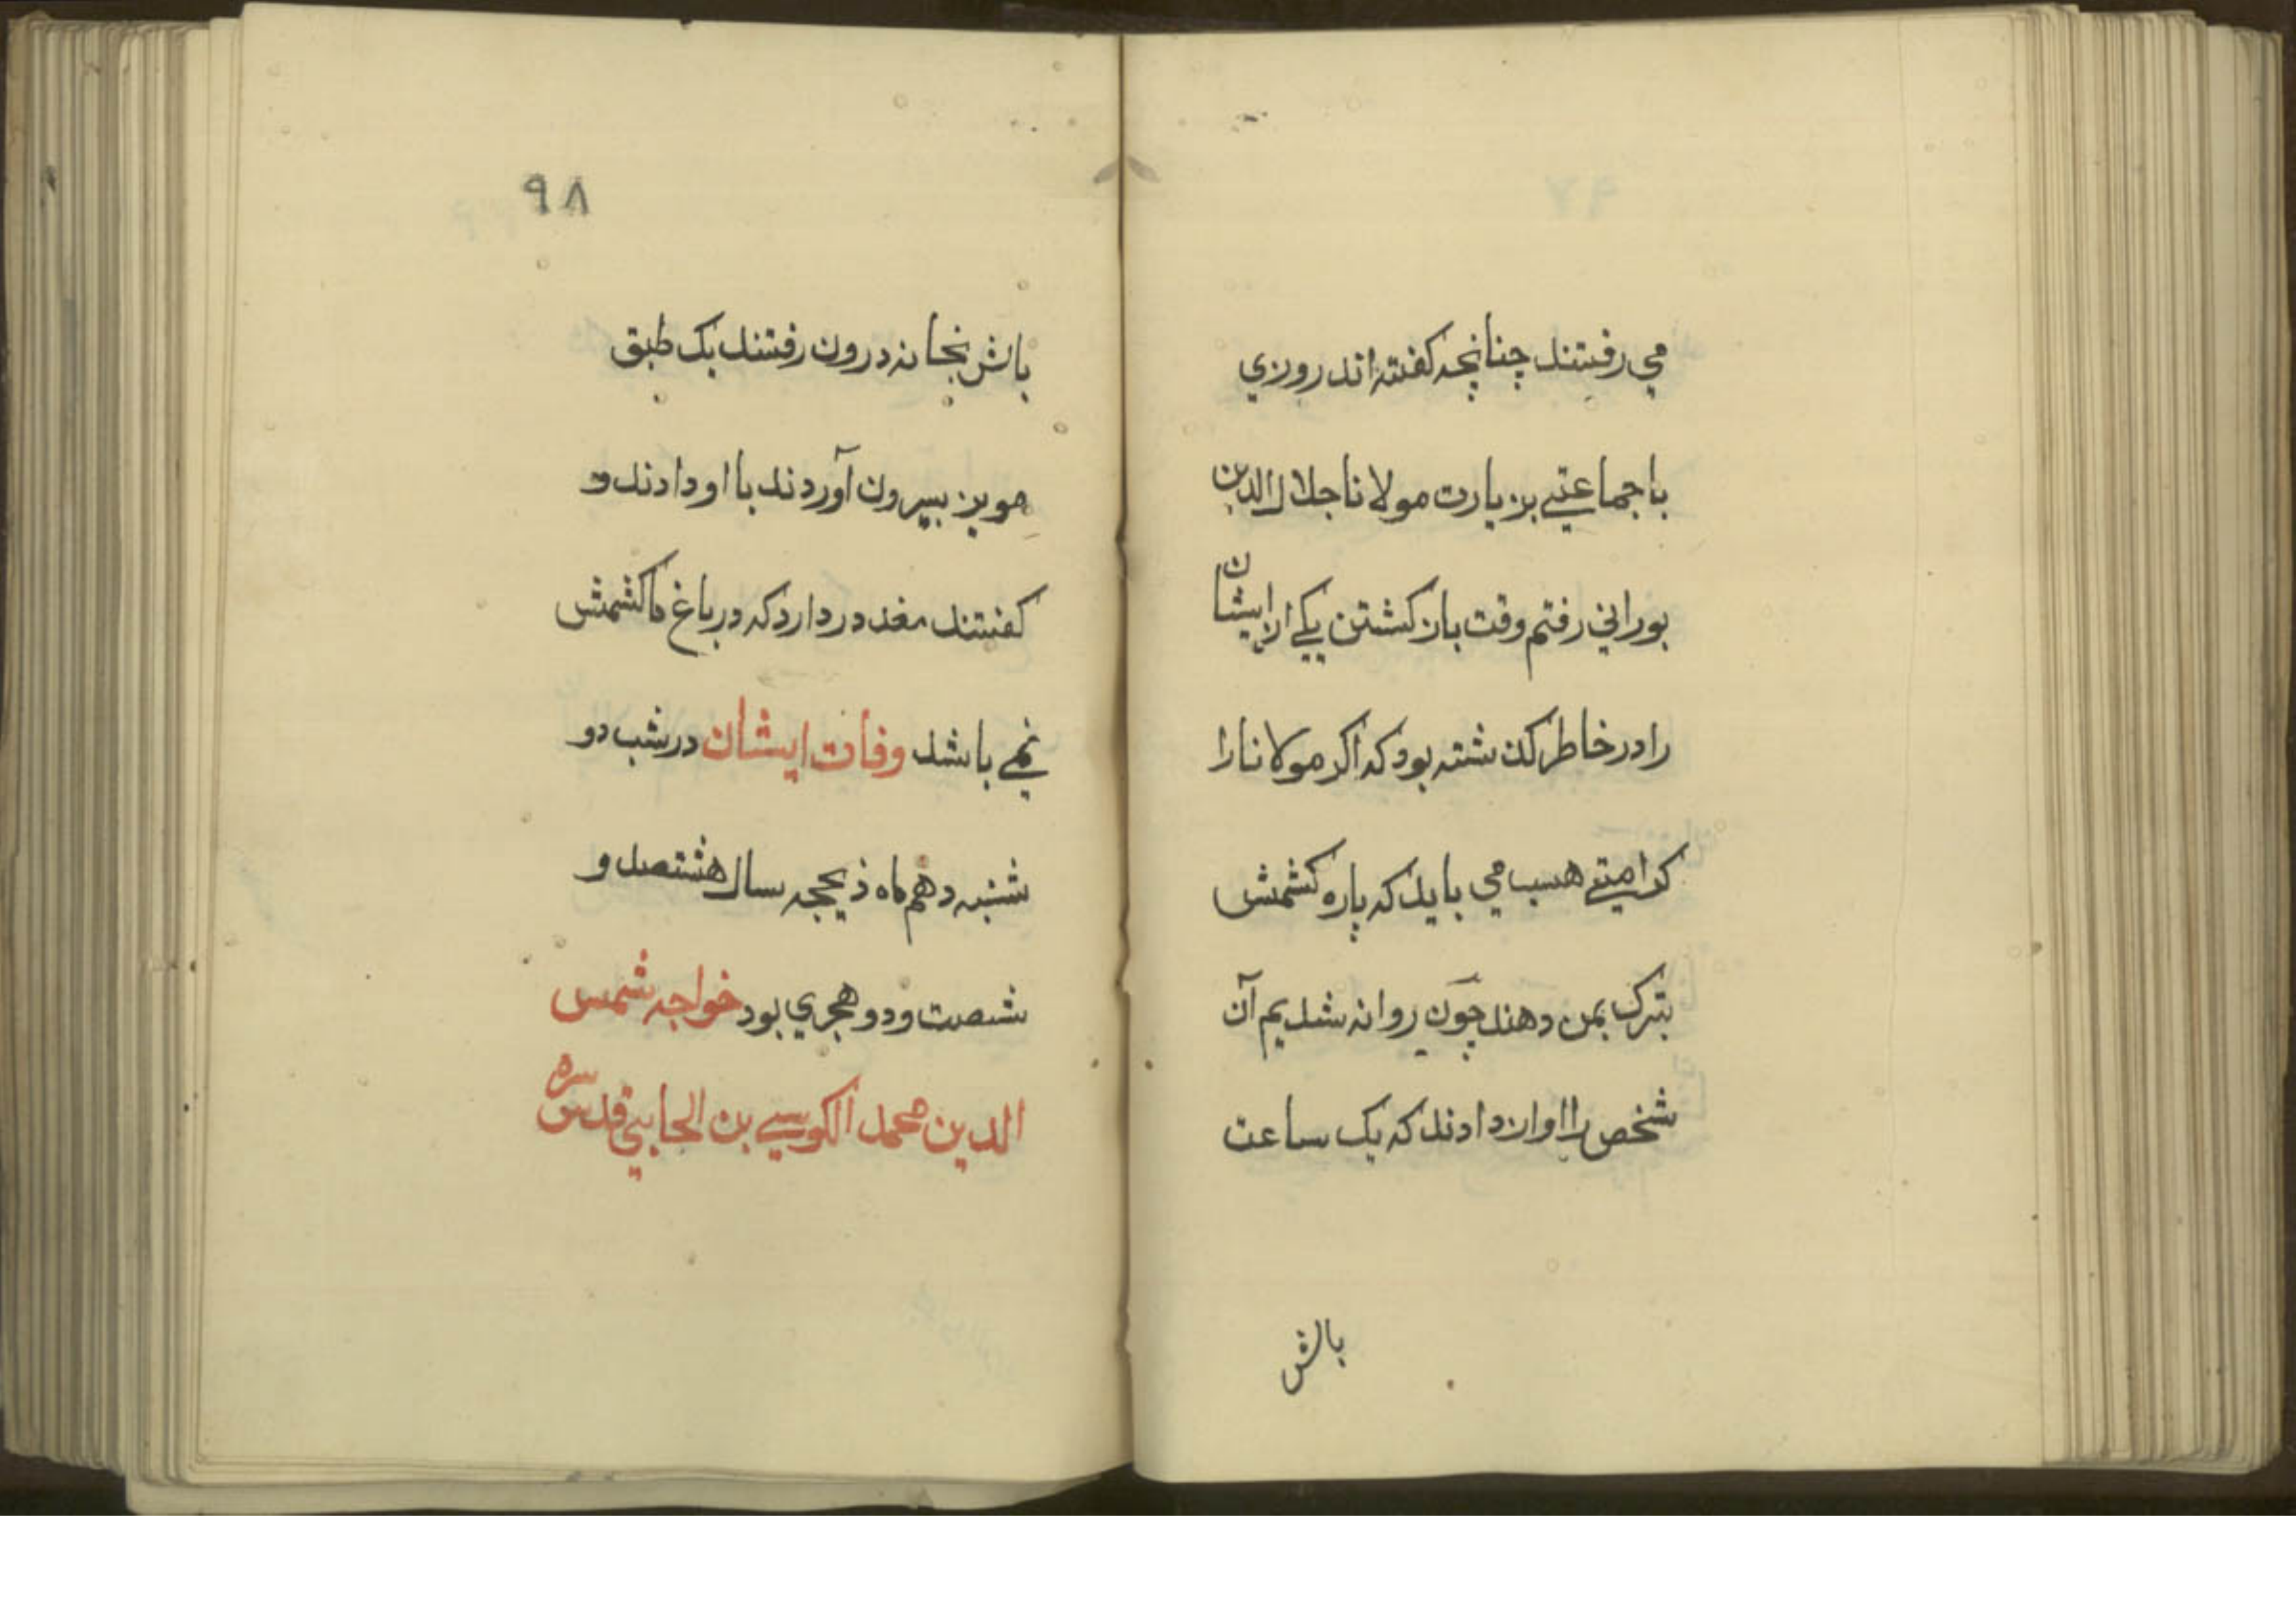 می رفتند چنانچه کفته اند روزی
با جماعتی بزیارت مولانا جلال الدین
بورانی رفتم وقت بازکشتن یکی از ایشان
را در خاطر کذشته بود که اکر مولانا را
کرامتی هست می باید که پاره کشمش
بتبرک بمن دهند چون روانه شدیم آن
شخص را اواز دادند که یک ساعت
باش
۹۸
باش بخانه درون رفتند یک طبق
مویز بیرون آوردند با او دادند و
کفتند معذور دارد که در باغ ما کشمش
نمی باشد وفات ایشان در شب دو
شنبه دهم ماه ذیحجه سال هشتصد و
شصت و دو هجری بود خواجه شمس
الدین محمد الکوسی بن الجامی قدس سره